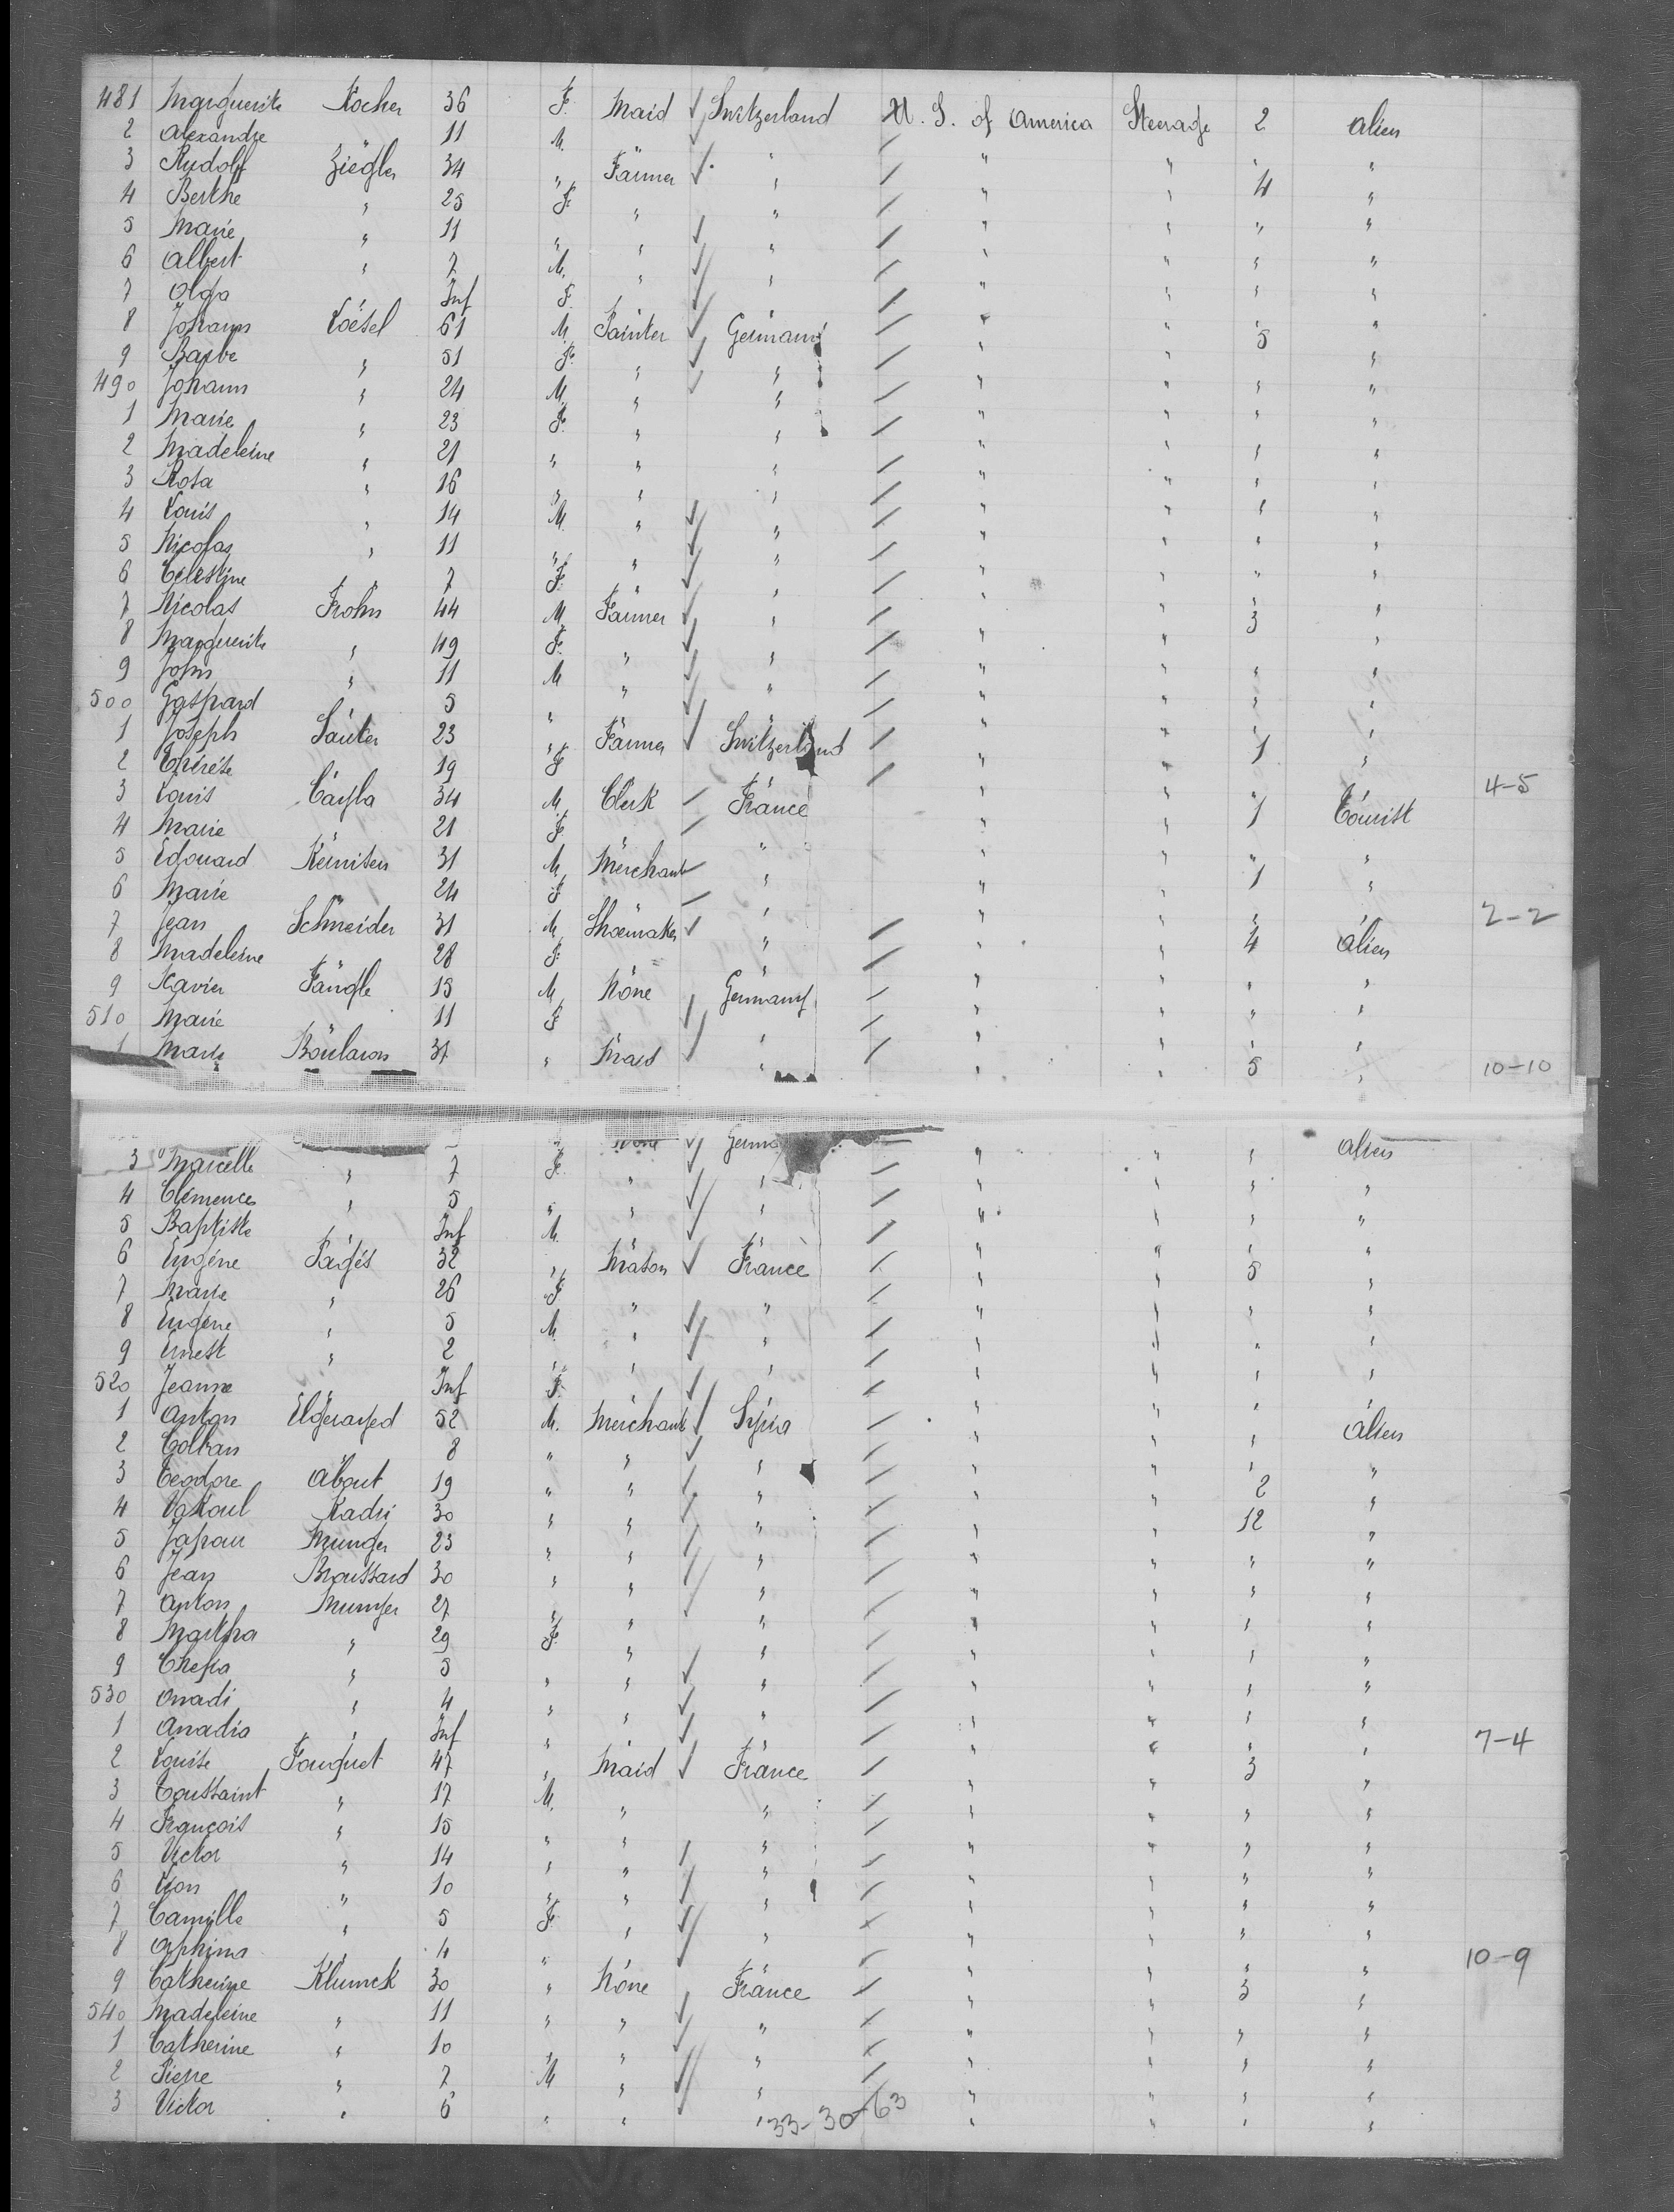 481 Marguerite Kocher 36 F. Maid Switzerland U. S. of America Steerage 2 alien
2 Alexandre " 11 M. " " " " "
3 Rudolf Ziegler 34 " Farmer " " " 4 "
4 Berthe " 25 F. " " " " " "
5 Marie " 11 " " " " " " "
6 Albert " 7 M. " " " " " "
7 Olga " Inf F. " " " " " "
8 Johann Loesel 61 M. Painter Germany " " 5 "
9 Barbe " 51 F. " " " " " "
490 Johann " 24 M. " " " " " "
1 Marie " 23 F. " " " " " "
2 Madeleine " 21 " " " " " " "
3 Rosa " 16 " " " " " " "
4 Louis " 14 M. " " " " " "
5 Nicolas " 11 " " " " " " "
6 Celestine " 7 F. " " " " " "
7 Nicolas Frohn 44 M. Farmer " " " 3 "
8 Marguerite " 49 F. " " " " " "
9 John " 11 M " " " " " "
500 Gaspard " 5 " " " " " " "
1 Joseph Sauter 23 " Farmer Switzerland " " 1 "
2 Therese " 19 F " " " " " "
3 Louis Cayla 34 M. Clerk France " " 1 Tourist 4-5
4 Marie " 21 F. " " " " " "
5 Edouard 31 M. Merchant " " " 1 "
6 Marie " 24 F " " " " " "
7 Jean Schneider 31 M. Shoemaker " " " 4 alien 2-2
8 Madeleine " 28 F. " " " " " "
9 Xavier 15 M. None Germany " " " "
510 Marie " 11 F " " " " " "
1 Marie Boularon 37 " Maid " " " 5 " 10-10
None Germ alien
3 Marcelle " 7 F. " " " " " "
4 Clemence " 5 " " " " " " "
5 Baptiste " Inf M. " " " " " "
6 Eugène Pagés 32 " Mason France " " 5 "
7 Marie " 26 F " " " " " "
8 Eugene " 5 M. " " " " " "
9 Ernest " 2 " " " " " " "
520 Jeanne " Inf F. " " " " " "
1 Anton Elgerayed 52 M. Merchant Syria " " " alien
2 Coltan " 8 " " " " " " "
3 Teodore About 19 " " " " " 2 "
4 Vakoul Kadri 30 " " " " " 12 "
5 Japau Munger 23 " " " " " " "
6 Jean Broussard 30 " " " " " " "
7 Anton Munger 27 " " " " " " "
8 Martha " 29 F. " " " " " "
9 " 5 " " " " " " "
530 Onadi " 4 " " " " " " "
1 Anadia " Inf " " " " " " " 7-4
2 Louise Fouquet 47 " Maid France " " 3 "
3 Toussaint " 17 M. " " " " " "
4 François " 15 " " " " " " "
5 Victor " 14 " " " " " " "
6 Léon " 10 " " " " " " "
7 Camille " 5 F. " " " " " "
8 " 4 " " " " " " " 10-9
9 Catherine Klumek 30 " None France " " 3 "
540 Madeleine " 11 " " " " " " "
1 Catherine " 10 " " " " " " "
2 Pierre " 7 M " " " " " "
3 Victor " 6 " " " " " " "
33-30-63